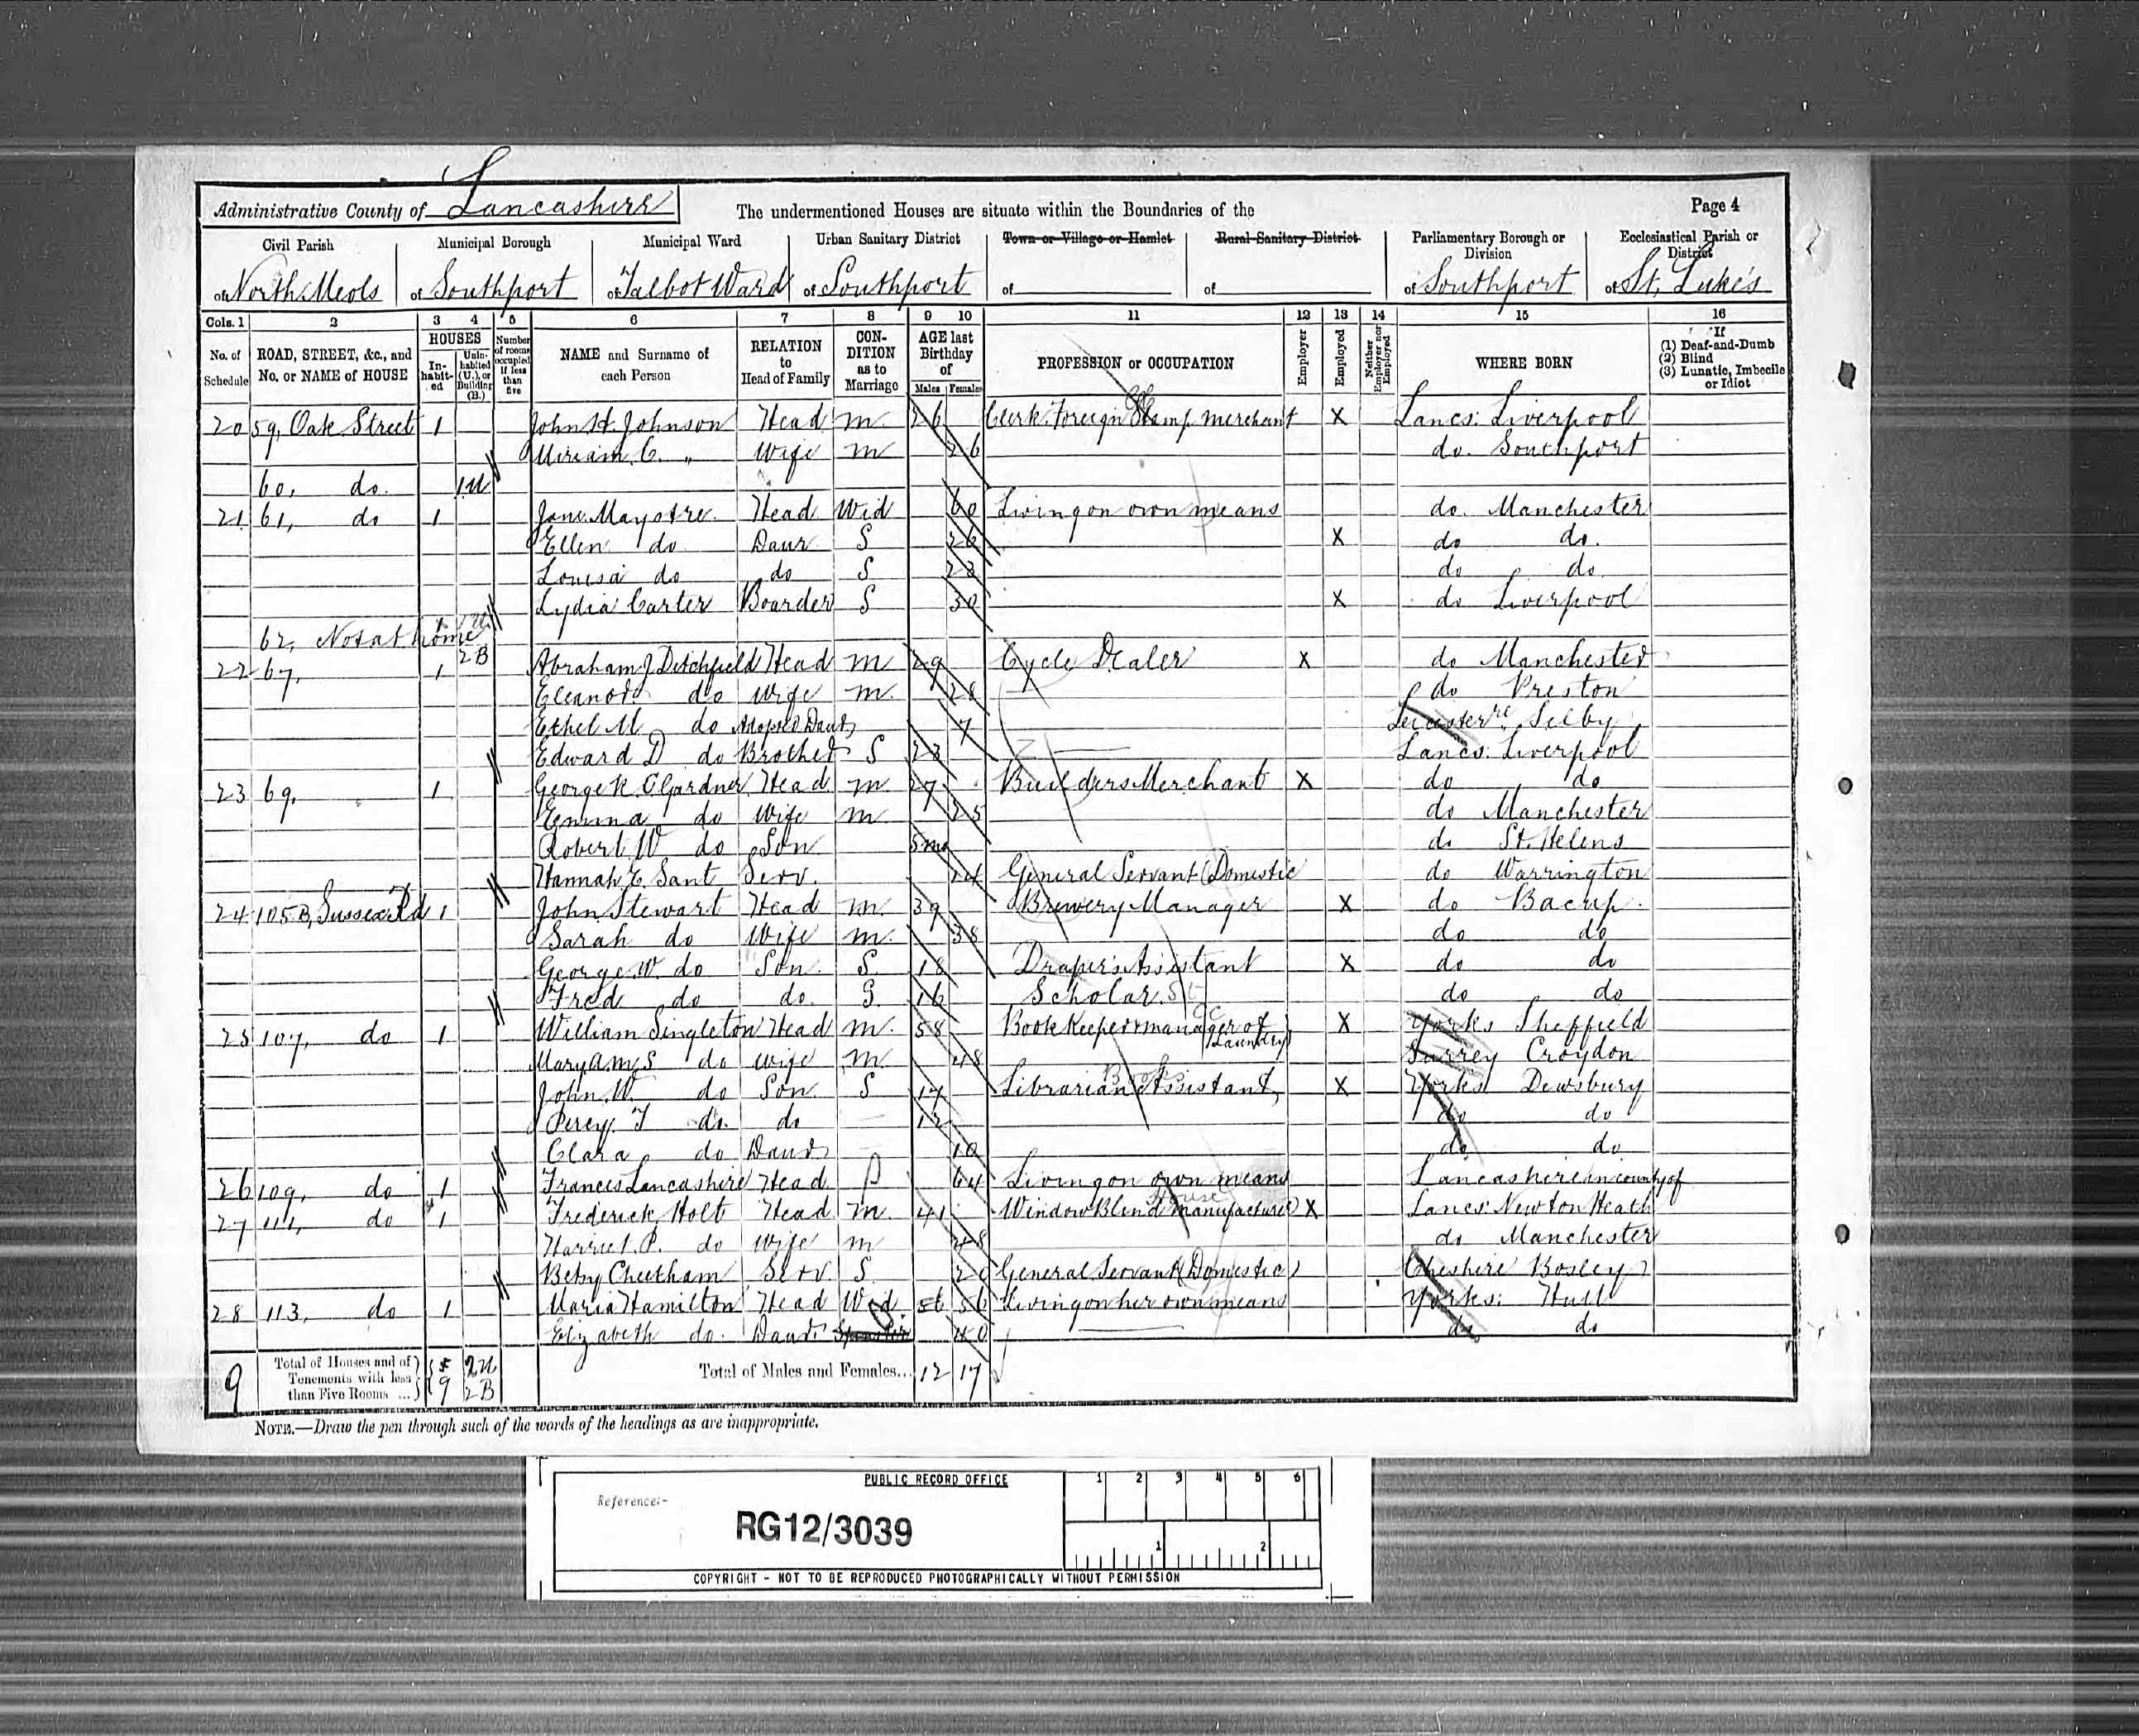 Administrative County of Lancashire The undermentioned Houses are situate within the Boundaries of the Page 4
Civil Parish Municipal Borough Municipal Ward Urban Sanitary District Town or Village or Hamlet Rural Sanitary District Parliamentary Borough or Division Ecclesiastical Parish or District
of North Meols of Southport of Talbot Ward of Southport of of of Southport of St. Luke's
Cols. 1 2 3 4 5 6 7 8 9 10 11 12 13 14 15 16
No. of Schedule ROAD, STREET, &c., and No. or NAME of HOUSE HOUSES In-habit-ed Unin-habited (U.), or Building (B.) Number of rooms occupied if less than five NAME and Surname of each Person RELATION to Head of Family CON-DITION as to Marriage AGE last Birthday of Males Females PROFESSION or OCCUPATION Employer Employed Neither Employer nor Employed WHERE BORN If (1) Deaf-and-Dumb (2) Blind (3) Lunatic, Imbecile or Idiot
20 59, Oak Street 1 John H. Johnson Head m. 26 Clerk Foreign Stamp Merchant X Lancs: Liverpool
Miriam C. " Wife m 26 do. Southport
60, do. 1U
21 61, do 1 Jane Mayotre. Head Wid 60 Living on own means do. Manchester
Ellen do Daur S 26 X do do.
Louisa do do S 23 do do.
Lydia Carter Boarder S 30 X do Liverpool
62, Not at home 1U
2B
22 67, 1 Abraham J Ditchfield Head m 29 Cycle Dealer X do Manchester
Eleanor do Wife m. 28 do Preston
Ethel M do Adopted Daur 7 Leicesterre Selby
Edward D do Brother S 23 Lancs: Liverpool
23 69, 1 George R. C Gardner Head m 27 Builders Merchant X do do
Emma do Wife m 25 do Manchester
Robert W do Son 5mo do St. Helens
Hannah E. Sant Serv. 14 General Servant (Domestic do Warrington
24 105B, Sussex Rd 1 John Stewart Head m. 39 Brewery Manager X do Bacup.
Sarah do Wife m. 38 do do
George W. do Son. S. 18 Draper's Assistant X do do
Fred do do. S. 16 Scholar. St do do
25 107, do 1 William Singleton Head m. 58 Book Keeper & manager of Laundry) X Yorks Sheffield
Mary Am S do Wife m. 48 Surrey Croydon
John W. do Son. S 17 Librarian Assistant, X Yorks Dewsbury
Percy. T do. do 12 do do
Clara do Daur 10 do do
26 109, do 1 Frances Lancashire Head. 64 Living on own means Lancashire in county of
27 111, do 1 Frederick Holt Head m. 41 Window Blind manufacturer X Lancs: Newton Heath
Harriet. P. do Wife m 48 do Manchester
Betsy Cheetham Serv. S. 20 General Servant (Domestic) Cheshire Bosley
28 113, do 1 Maria Hamilton Head Wid. 56 56 Living on her own means Yorks: Hull
Elizabeth do. Daur Spinster 40 do do
9 Total of Houses and of Tenements with less than Five Rooms ... 9 2U 2B Total of Males and Females... 12 17
NOTE.—Draw the pen through such of the words of the headings as are inappropriate.
PUBLIC RECORD OFFICE 1 2 3 4 5 6
Reference:-
RG12/3039
1 2
COPYRIGHT - NOT TO BE REPRODUCED PHOTOGRAPHICALLY WITHOUT PERMISSION